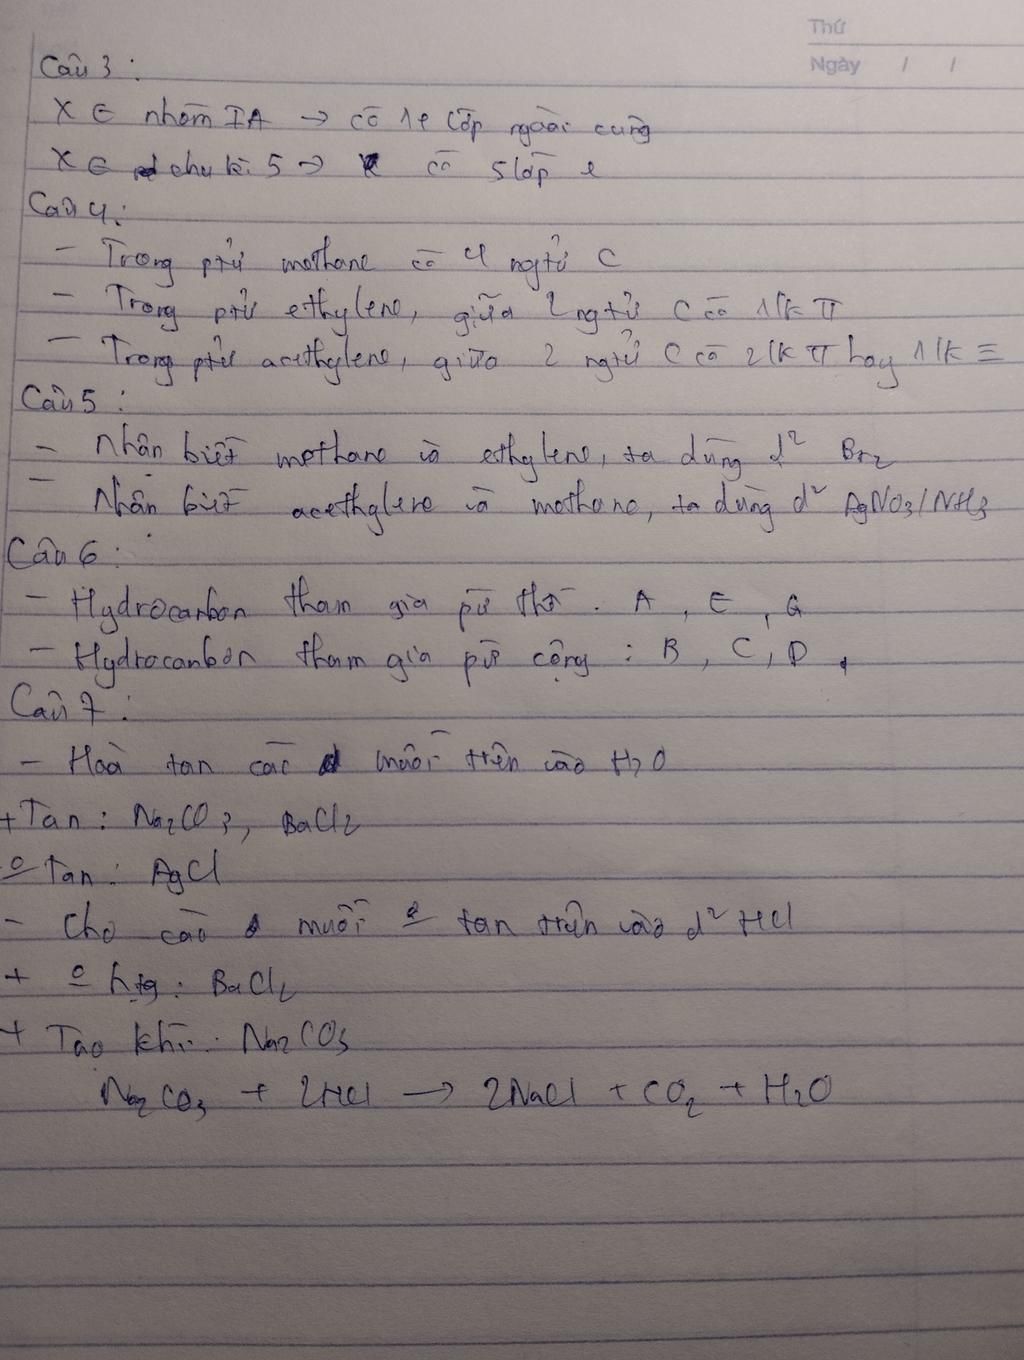 Thứ
Ngày / /
Câu 3 :
X ∈ nhóm IA → có 1e lớp ngoài cùng
X ∈ chu kì 5 → có 5 lớp e
Câu 4 :
- Trong ptử methane có 4 ngtử C
- Trong ptử ethylene, giữa 2 ngtử C có 1 lk π
- Trong ptử acethylene, giữa 2 ngtử C có 2 lk π hay 1 lk ≡
Câu 5 :
- Nhân biết methane và ethylene, ta dùng d² Br₂
- Nhân biết acethylene và methane, ta dùng d² AgNO₃/NH₃
Câu 6 :
- Hydrocarbon tham gia pứ thế : A , E , G
- Hydrocanbon tham gia pứ cộng : B , C , D
Câu 7 :
- Hoà tan các muối trên vào H₂O
+ Tan : Na₂CO₃, BaCl₂
o Tan : AgCl
- Cho các muối o tan trên vào d² HCl
+ o htg : BaCl₂
+ Tạo khí : Na₂CO₃
Na₂CO₃ + 2HCl → 2NaCl + CO₂ + H₂O